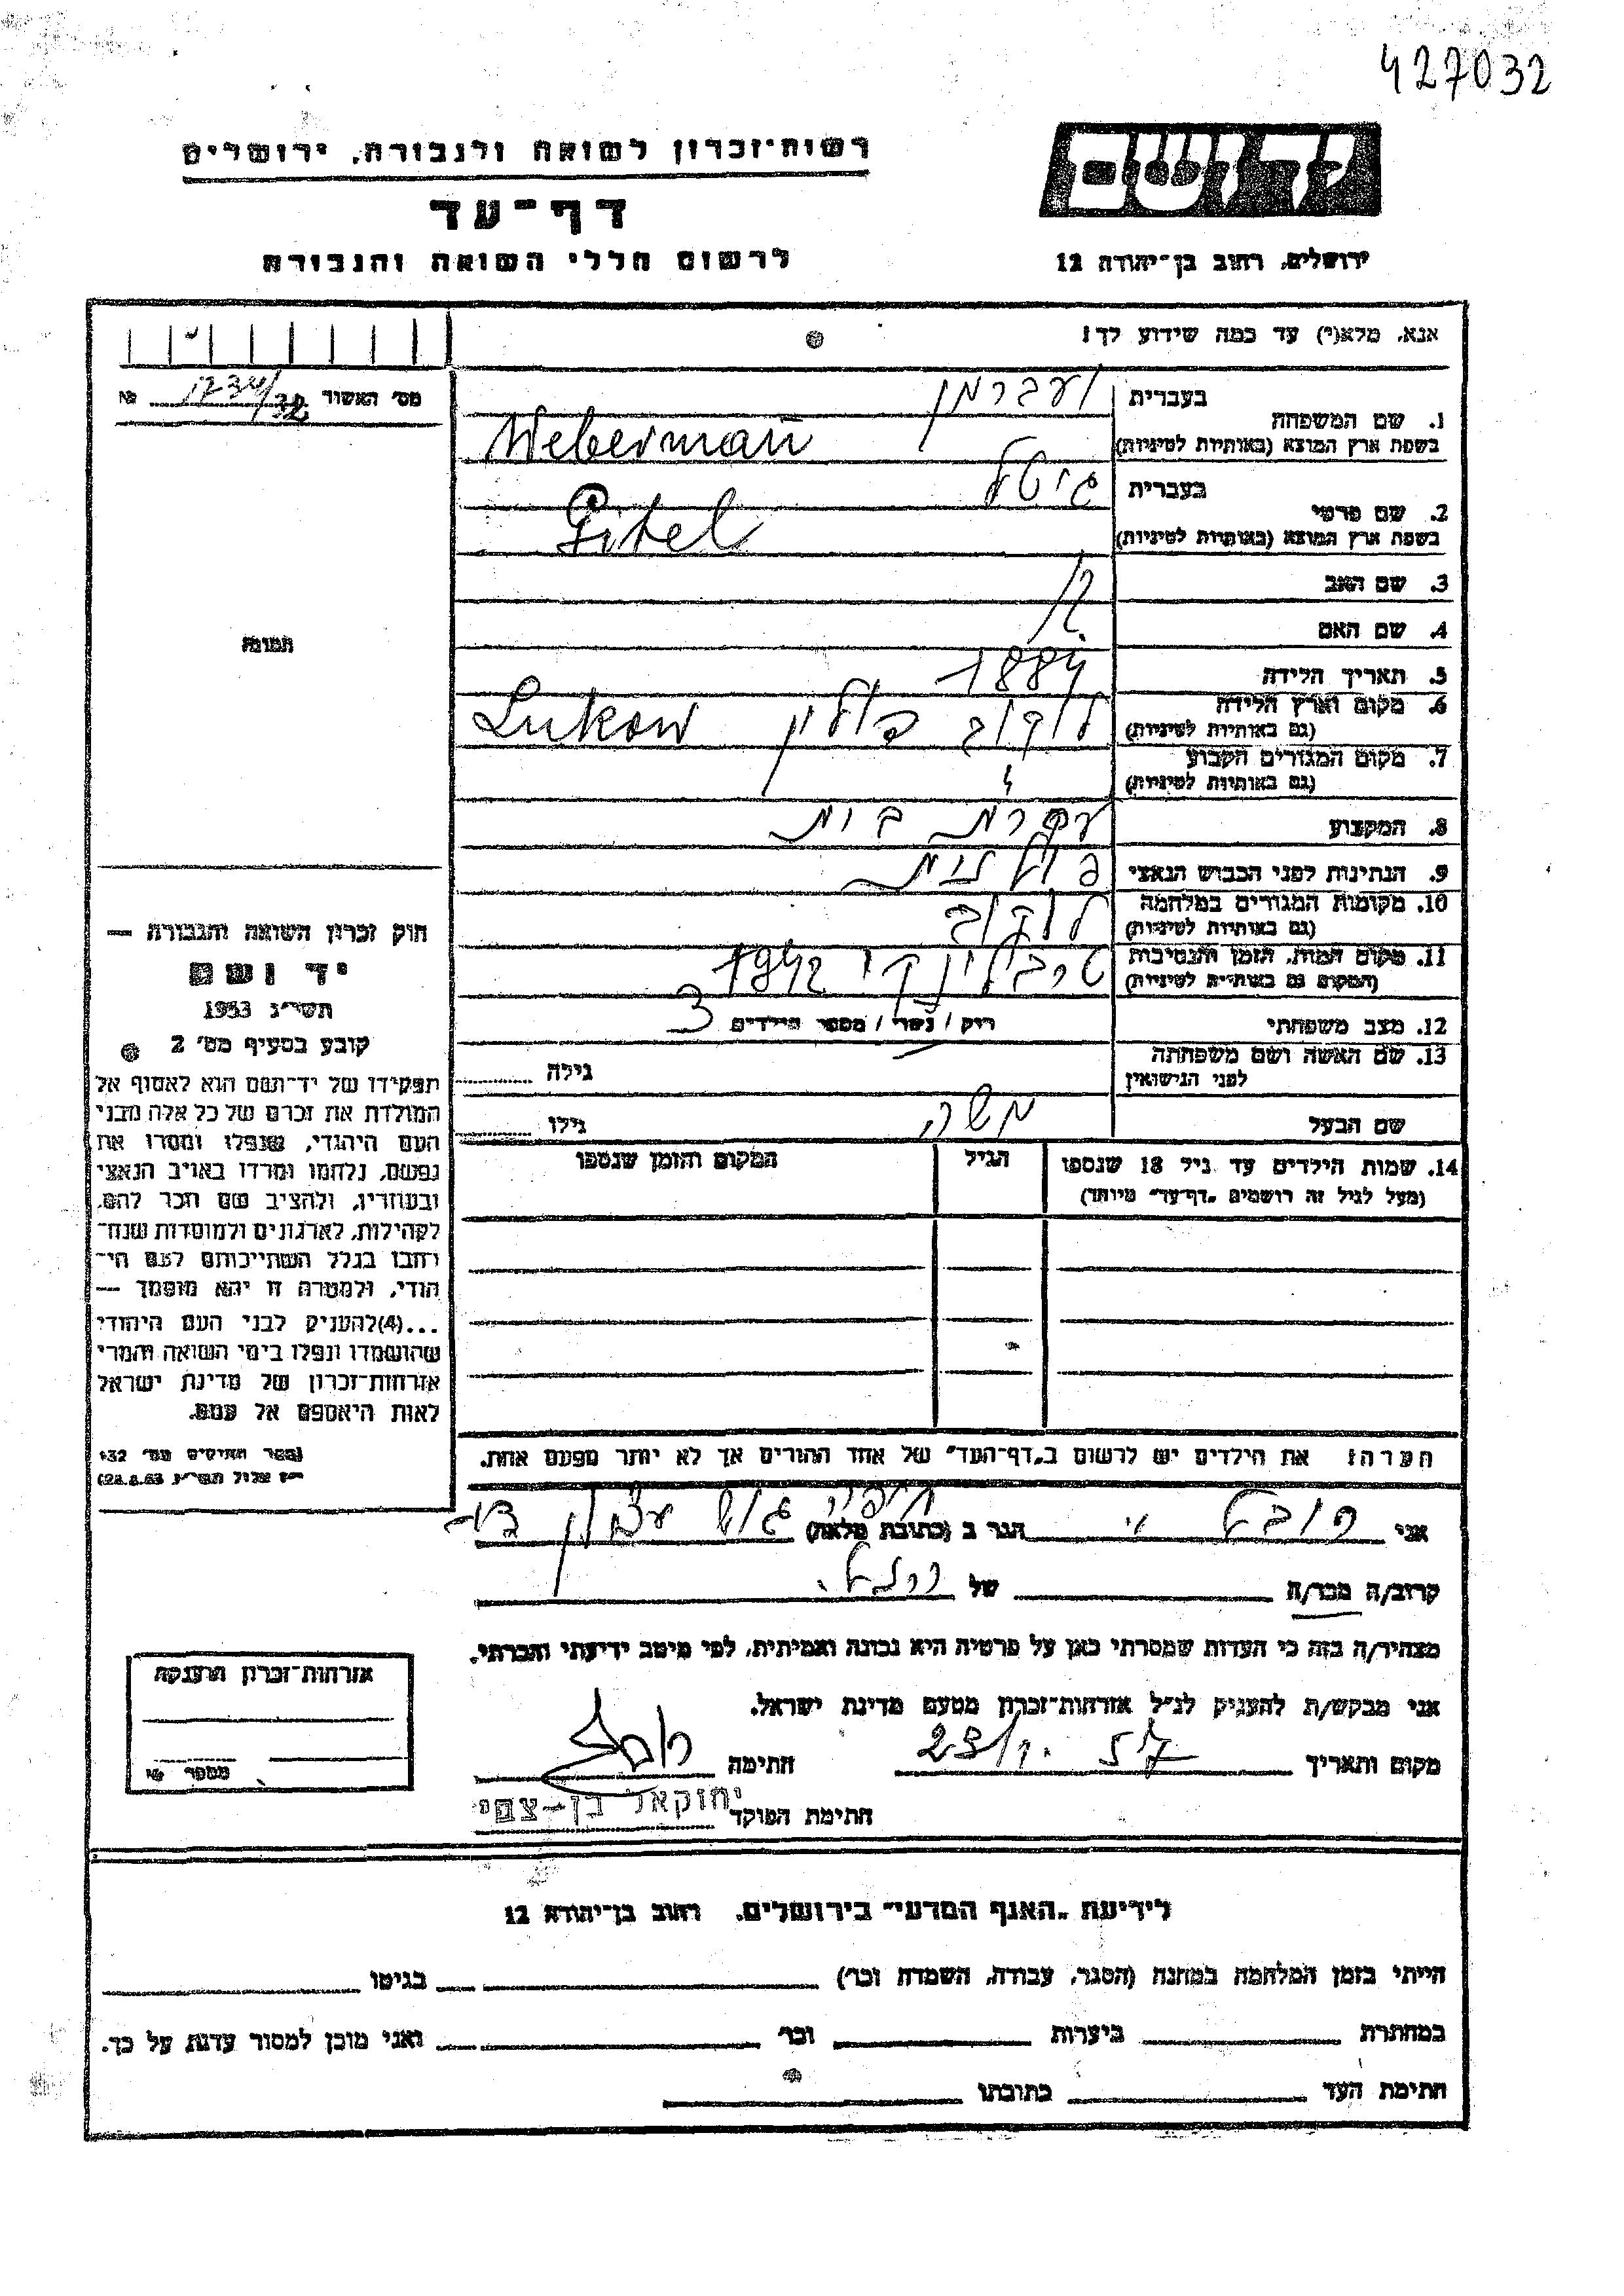 427032
יד ושם
רשות-זכרון לשואה ולגבורה, ירושלים
דף-עד
לרשום חללי השואה והגבורה
ירושלים, רחוב בן-יהודה 12
אנא, מלא(י) עד כמה שידוע לך!
מס' האשור 1234/32 №
1. שם המשפחה
בעברית וועברמן
בשפת ארץ המוצא (באותיות לטיניות) Weberman
2. שם פרטי
בעברית גיטל
בשפת ארץ המוצא (באותיות לטיניות) Gitel
3. שם האב
4. שם האם
5. תאריך הלידה 1884
6. מקום וארץ הלידה
(גם באותיות לטיניות) לוקוב פולין Lukow
7. מקום המגורים הקבוע
(גם באותיות לטיניות)
8. המקצוע עקרת בית
9. הנתינות לפני הכבוש הנאצי פולנית
10. מקומות המגורים במלחמה
(גם באותיות לטיניות) לוקוב
11. מקום המות, הזמן והנסיבות
(המקום גם באותיות לטיניות) טרבלינקי 1942
12. מצב משפחתי רווק / נשוי / מספר הילדים 3
13. שם האשה ושם משפחתה
לפני הנישואין גילה
שם הבעל משה גילו
14. שמות הילדים עד גיל 18 שנספו
(מעל לגיל זה רושמים "דף-עד" מיוחד)
הגיל
המקום והזמן שנספו
הערה: את הילדים יש לרשום ב"דף-העד" של אחד ההורים אך לא יותר מפעם אחת.
תמונה
חוק זכרון השואה והגבורה —
יד ושם
תשי"ג 1953
קובע בסעיף מס' 2
תפקידו של יד-ושם הוא לאסוף אל
המולדת את זכרם של כל אלה מבני
העם היהודי, שנפלו ומסרו את
נפשם, נלחמו ומרדו באויב הנאצי
ובעוזריו, ולהציב שם וזכר להם,
לקהילות, לארגונים ולמוסדות שנח-
רבו בגלל השתייכותם לעם הי-
הודי, ולמטרה זו יהא מוסמך —
...(4)להעניק לבני העם היהודי
שהושמדו ונפלו בימי השואה והמרי
אזרחות-זכרון של מדינת ישראל
לאות היאספם אל עמם.
(ספר החוקים מס' 132
י"ז אלול תשי"ג 28.8.53)
אני הגר ב (כתובת מלאה) חיפה
קרוב/ה מכר/ה של
מצהיר/ה בזה כי העדות שמסרתי כאן על פרטיה היא נכונה ואמיתית, לפי מיטב ידיעתי והכרתי.
אני מבקש/ת להעניק לנ"ל אזרחות-זכרון מטעם מדינת ישראל.
מקום ותאריך 57 חתימה
חתימת הפוקד יחזקאל בן-צבי
אזרחות-זכרון הוענקה
מספר №
לידיעת "האגף המדעי" בירושלים, רחוב בן-יהודה 12
הייתי בזמן המלחמה במחנה (הסגר, עבודה, השמדה וכו') בגיטו
במחתרת ביערות וכו' ואני מוכן למסור עדות על כך.
חתימת העד כתובתו